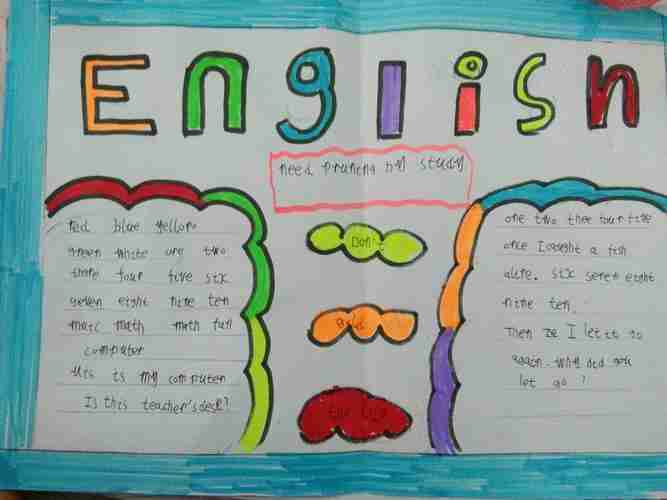 English
need pruning by study
Red blue yellow
green white one two
three four five six
seven eight nine ten
math math fun
computer
is my computer
Is this teacher's desk?
Don't
the
one two thee four five
once I caught a fish
alive. six seven eight
nine ten.
Then I let it go
again. why did you
let go ?